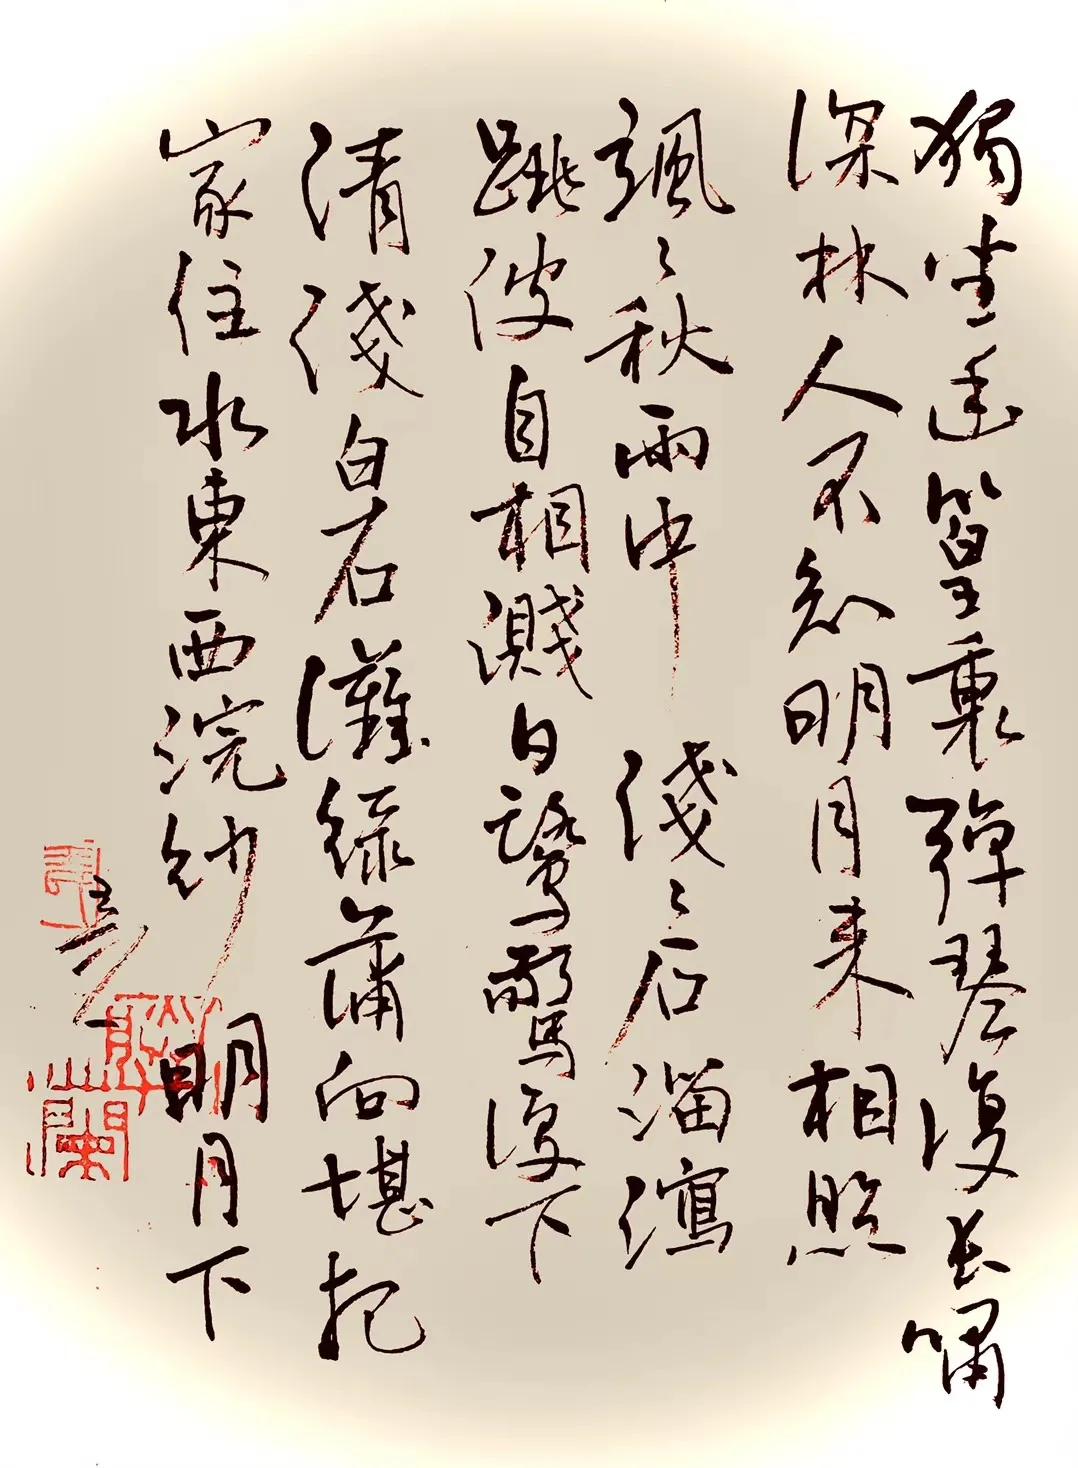 獨坐幽篁裏彈琴復長嘯
深林人不知明月来相照
颯々秋雨中 淺々石溜瀉
跳波自相濺白鷺驚復下
清淺白石灘綠蒲向堪把
家住水東西浣紗明月下